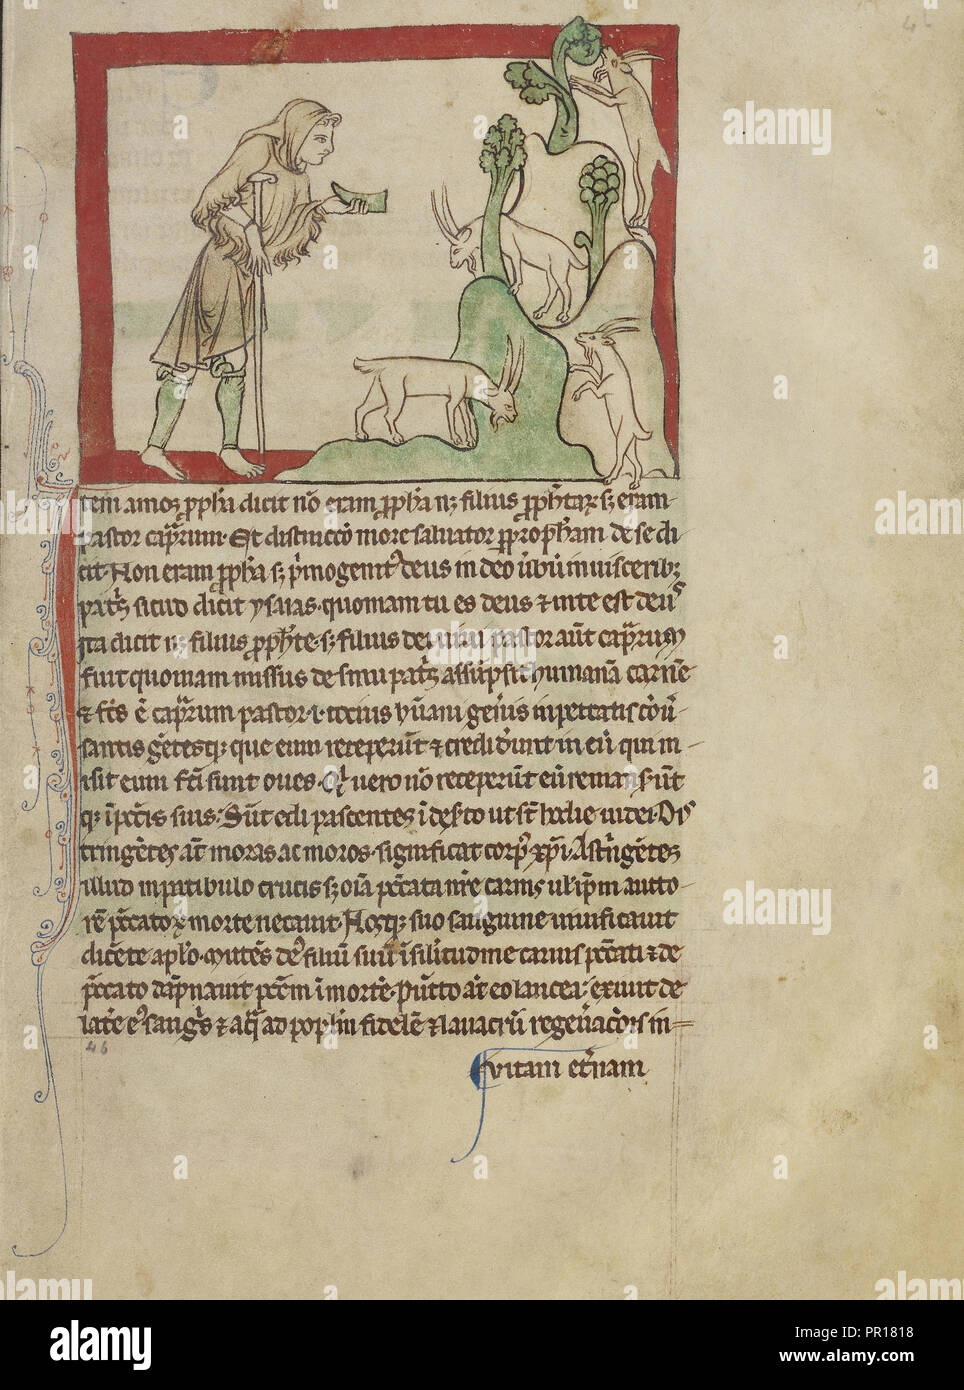 Item amos ppha dicit nō eram ppha nͬ filius pphetaꝝ sꝫ eram
pastor caprarum. Et distinccō more saluator ꝑ propham de se di
cit. Non eram ppha sꝫ pͥmogenitꝰ deus in deo ūbū in uisceribꝫ
patris sicud dicit ysaias. quoniam tu es deus ⁊ in te est deus
Ita dicit nͬ filius pphete sꝫ filius dei uiui pastor aūt caprarum
fuit quoniam missus de sinu patris assūpsit humanā carnē
⁊ fcs ē caprarum pastor .i. tocius hūani gen̄is in peccatis cōū
santis gētesqꝫ que eum receperūt ⁊ crediderunt in eū qui m
isit eum fcī sunt oues. Qͥ uero nō receperūt eū remanserūt
qꝫ ī pccīs suis. Sūt edi pascentes ī
tringētes aūt moras ac moros. significat corpꝰ xpī. Astringētes
illud in patibulo crucis sꝫ oīa pccata nrē carnis ul ipm aucto
rē pccatoꝝ morte necauit. Nosqꝫ suo sanguine uiuificauit
dicēte aplo. Mittēs deꝰ filiū suū ī silitudinē carnis pccati ⁊ de
pccato dāpnauit pccm ī morte. Pūcto aūt eo lancea. exiuit de
latere eꝰ sangͥs ⁊ aqͣ ad poplm fidelē ⁊ lauacrū regenacōis in
uitam eternam
46
alamy
a
alamy
Image ID: PR1818
www.alamy.com